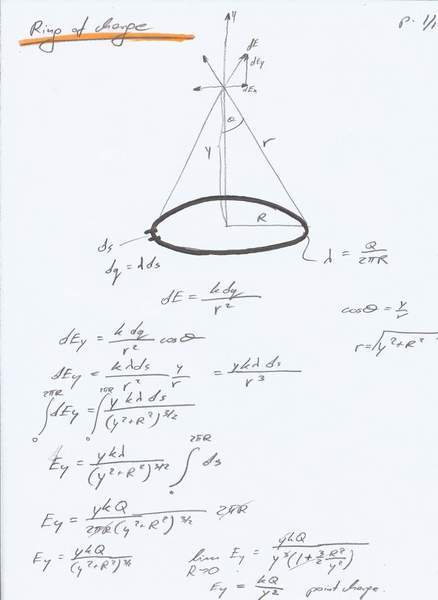 Ring of charge
p. 1/1
y
dE
dEy
dEx
θ
r
y
R
ds
dq = λ ds
λ = Q/2πR
dE = k dq / r²
cosθ = y/r
dEy = k dq / r² cosθ
r = √(y² + R²)
dEy = kλ ds / r² y/r = ykλ ds / r³
∫₀^{2πR} dEy = ∫₀^{2πR} y kλ ds / (y² + R²)^{3/2}
Ey = ykλ / (y² + R²)^{3/2} ∫₀^{2πR} ds
Ey = ykQ / 2πR (y² + R²)^{3/2} 2πR
Ey = ykQ / (y² + R²)^{3/2} lim R→0 Ey = ykQ / y³(1 + 3/2 R²/y²)
Ey = kQ / y² point charge.